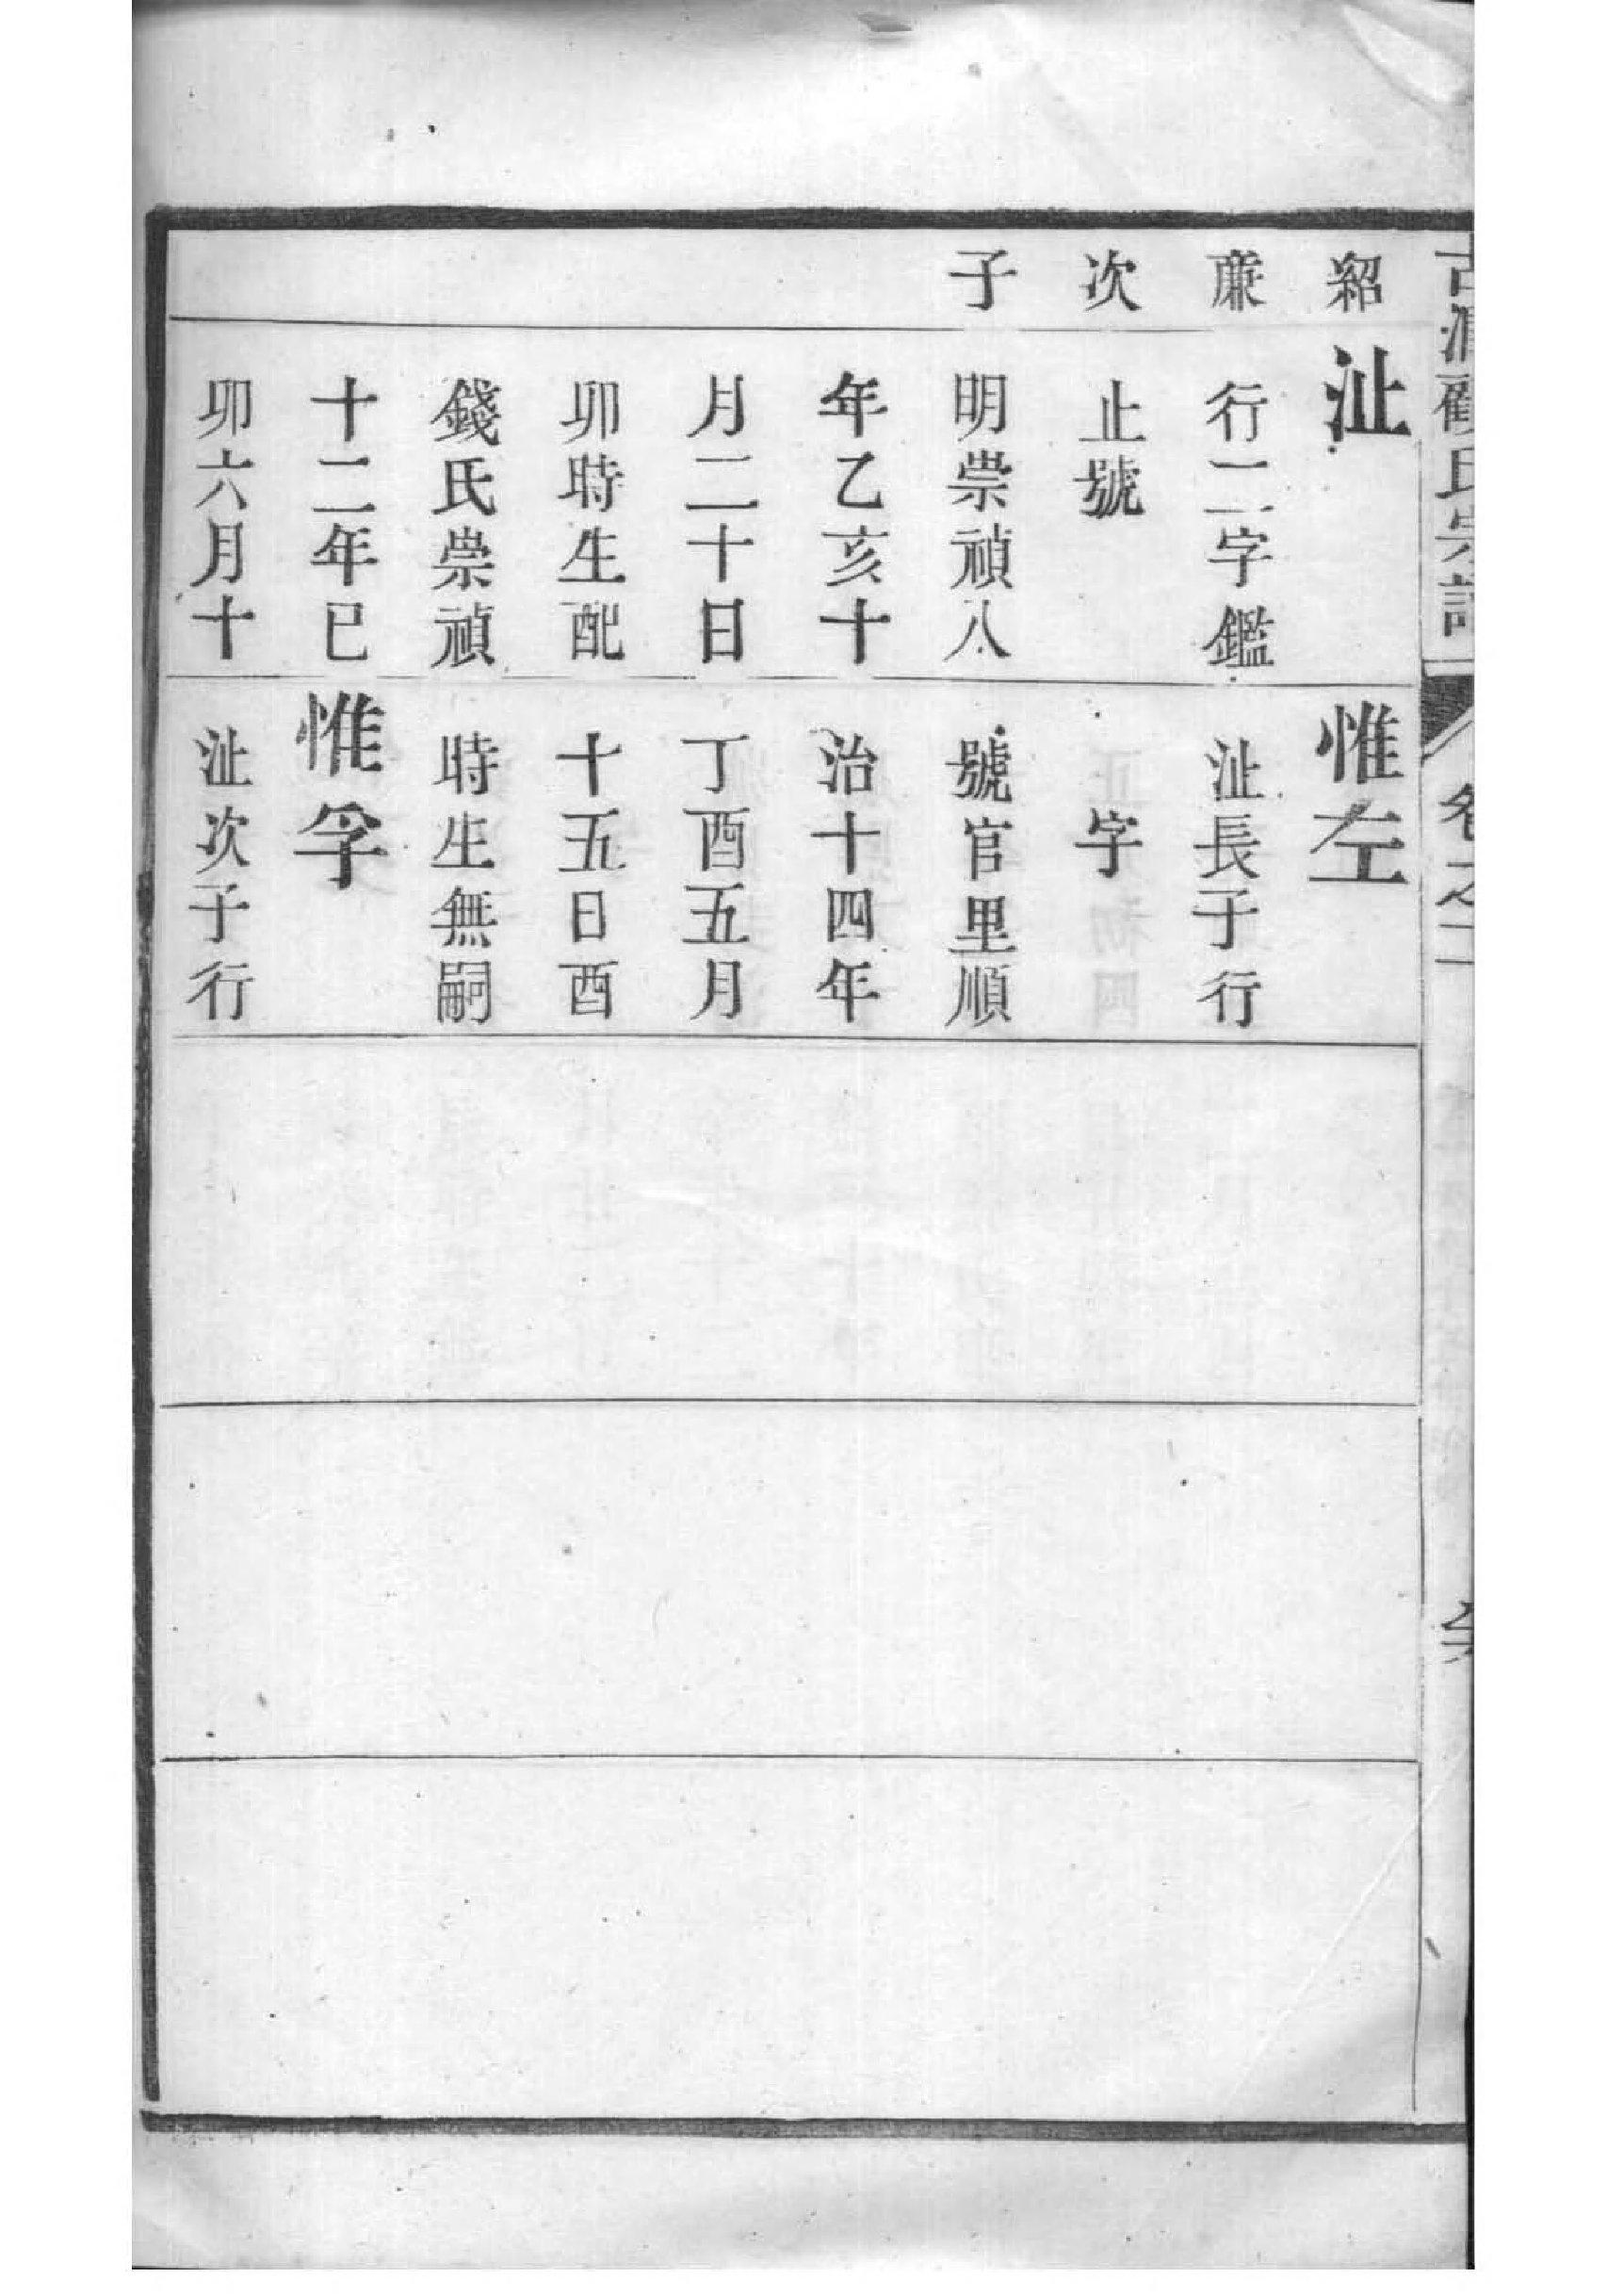 氏宗譜
卷之二
紹
㢘
次
子
沚
行二字鑑
止號
明崇禎八
年乙亥十
月二十日
卯時生配
錢氏崇禎
十二年已
卯六月十
惟左
沚長子行
字
號官里順
治十四年
丁酉五月
十五日酉
時生無嗣
惟孚
沚次子行